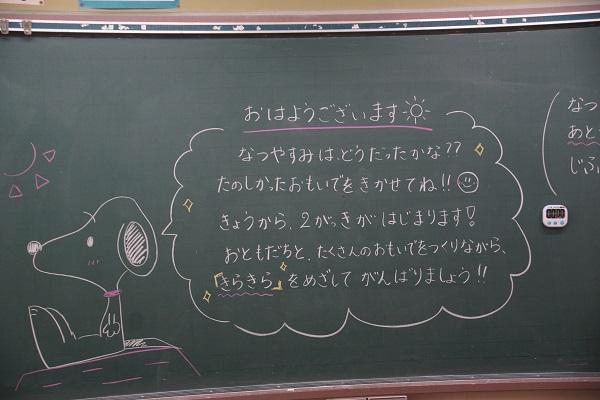 おはようございます
なつやすみは、どうだったかな??
たのしかったおもいでをきかせてね!!
きょうから、2がっきがはじまります!
おともだちと、たくさんのおもいでをつくりながら、
『きらきら』をめざしてがんばりましょう!!
なつ
あと
じぶ